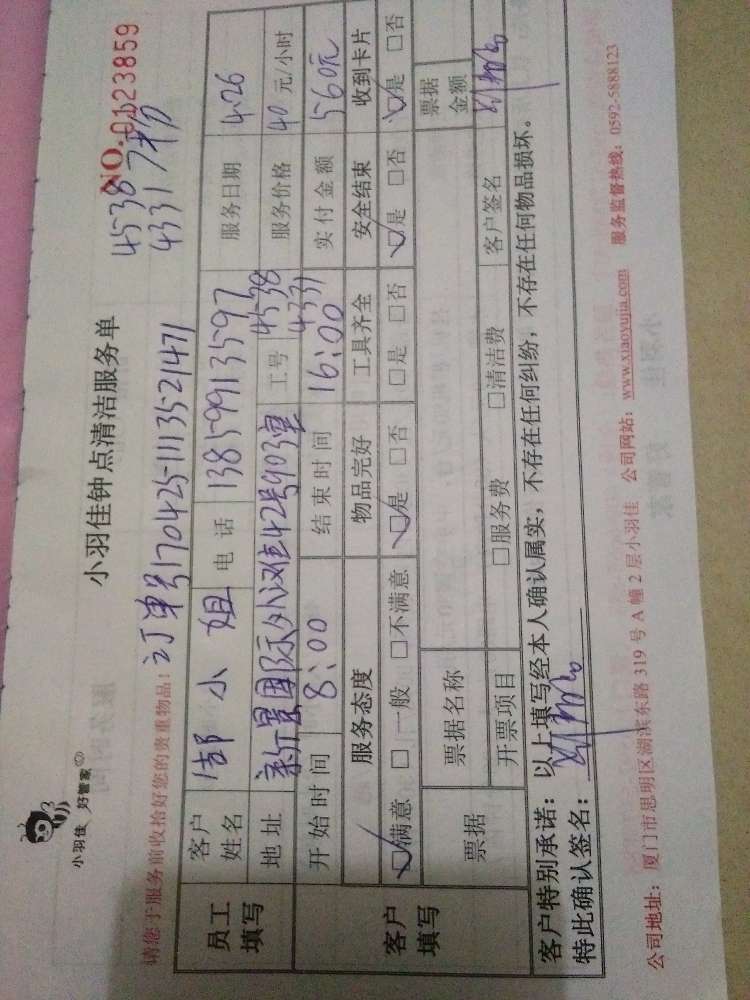 小羽佳 好管家
小羽佳钟点清洁服务单
NO. 0123859
4538
4331
请您于服务前收拾好您的贵重物品: 订单号1704251113521471
员工填写 客户姓名 小姐 电话 13859913597 服务日期 4.26
地址 新景国际外滩42号903室 工号 4538 4331 服务价格 40 元/小时
开始时间 8:00 结束时间 16:00 实付金额 560元
客户填写 服务态度 物品完好 工具齐全 安全结束 收到卡片
☑满意 □一般 □不满意 ☑是 □否 □是 □否 ☑是 □否 ☑是 □否
票据 票据名称 票据金额
开票项目 □服务费 □清洁费 客户签名
客户特别承诺: 以上填写经本人确认属实, 不存在任何纠纷, 不存在任何物品损坏.
特此确认签名:
公司地址: 厦门市思明区湖滨东路 319 号 A 幢 2 层小羽佳 公司网站: www.xiaoyujia.com 服务监督热线: 0592-5888123